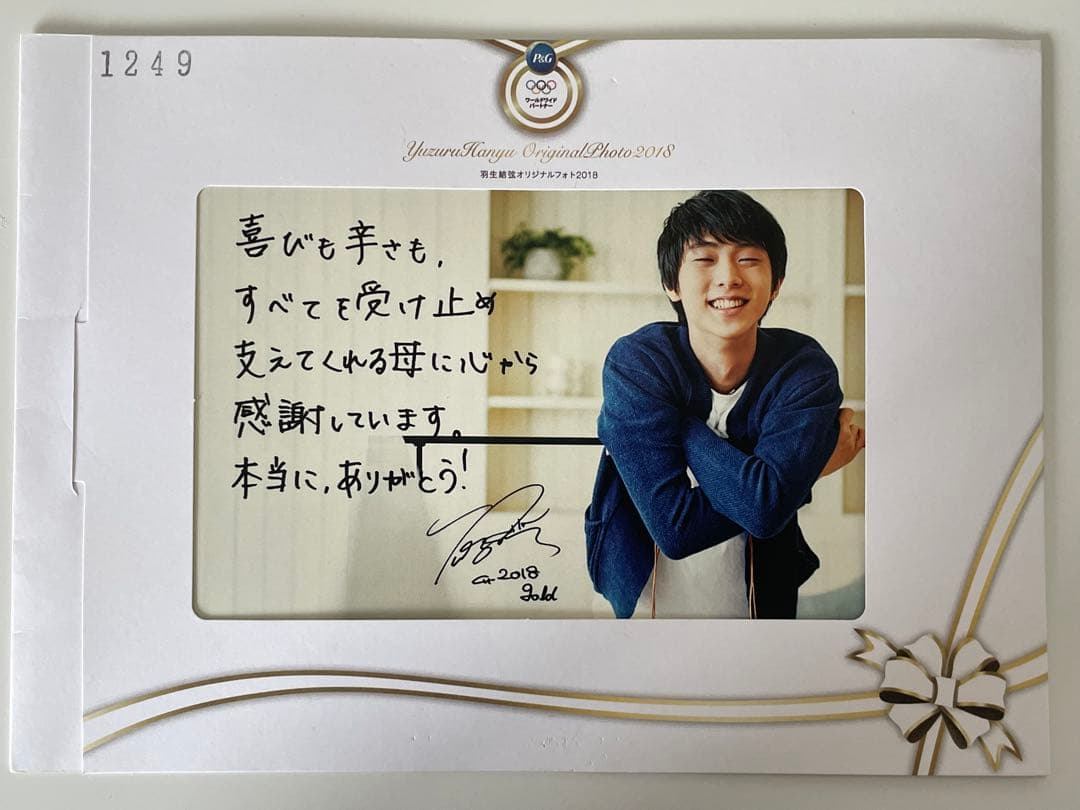 1249
P&G
ワールドワイド
パートナー
YuzuruHanyu OriginalPhoto2018
羽生結弦オリジナルフォト2018
喜びも辛さも,
すべてを受け止め
支えてくれる母に心から
感謝しています。
本当に,ありがとう!
2018
gold